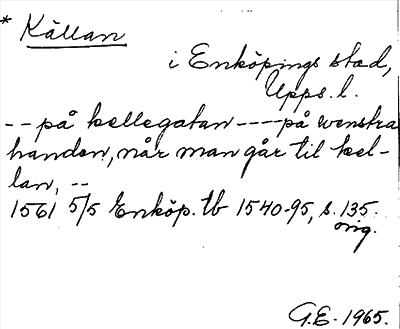 * Källan
i Enköpings stad,
Upps. l.
-- på kellegatan ---- på wenstra
handen, når man går til kel-
lan, --
1561 5/5 Enköp. tb 1540-95, s. 135.
orig.
G.E. 1965.